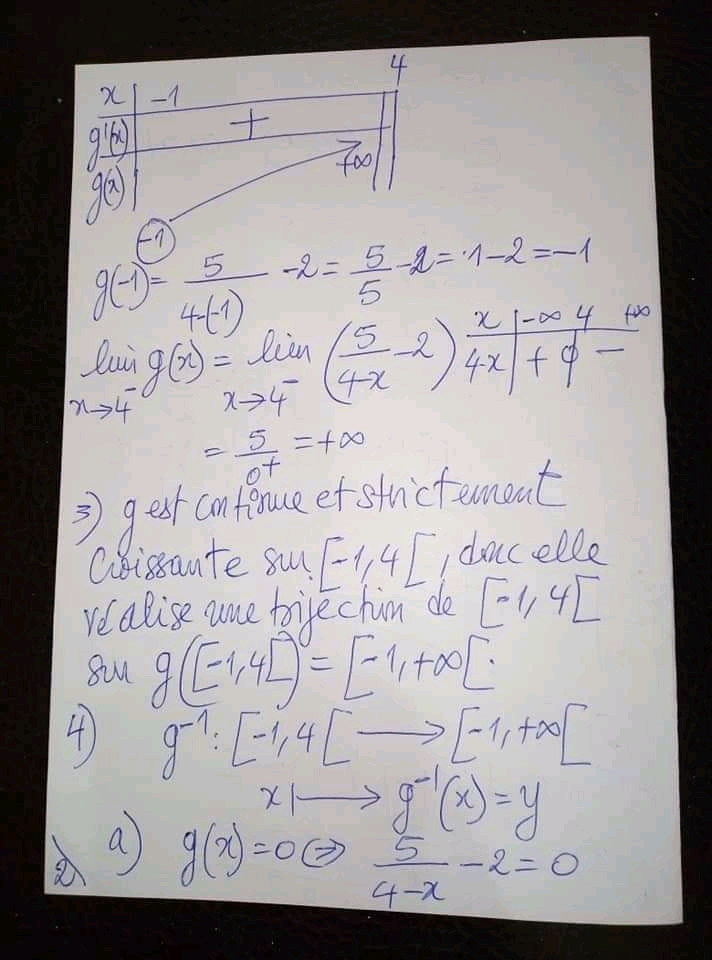 x | -1 4
g'(x) +
g(x) -1 +∞
g(-1) = 5/(4-(-1)) -2 = 5/5 -2 = 1-2 = -1
lim g(x) = lim (5/(4-x) -2)
x→4⁻ x→4⁻
x | -∞ 4 +∞
4-x | + 0 -
= 5/0⁺ = +∞
3) g est continue et strictement
croissante sur [-1,4[, donc elle
réalise une bijection de [-1,4[
sur g([-1,4[) = [-1,+∞[.
4) g⁻¹: [-1,4[ ⟶ [-1,+∞[
x ⟼ g⁻¹(x) = y
2) a) g(x)=0 ⇔ 5/(4-x) -2=0